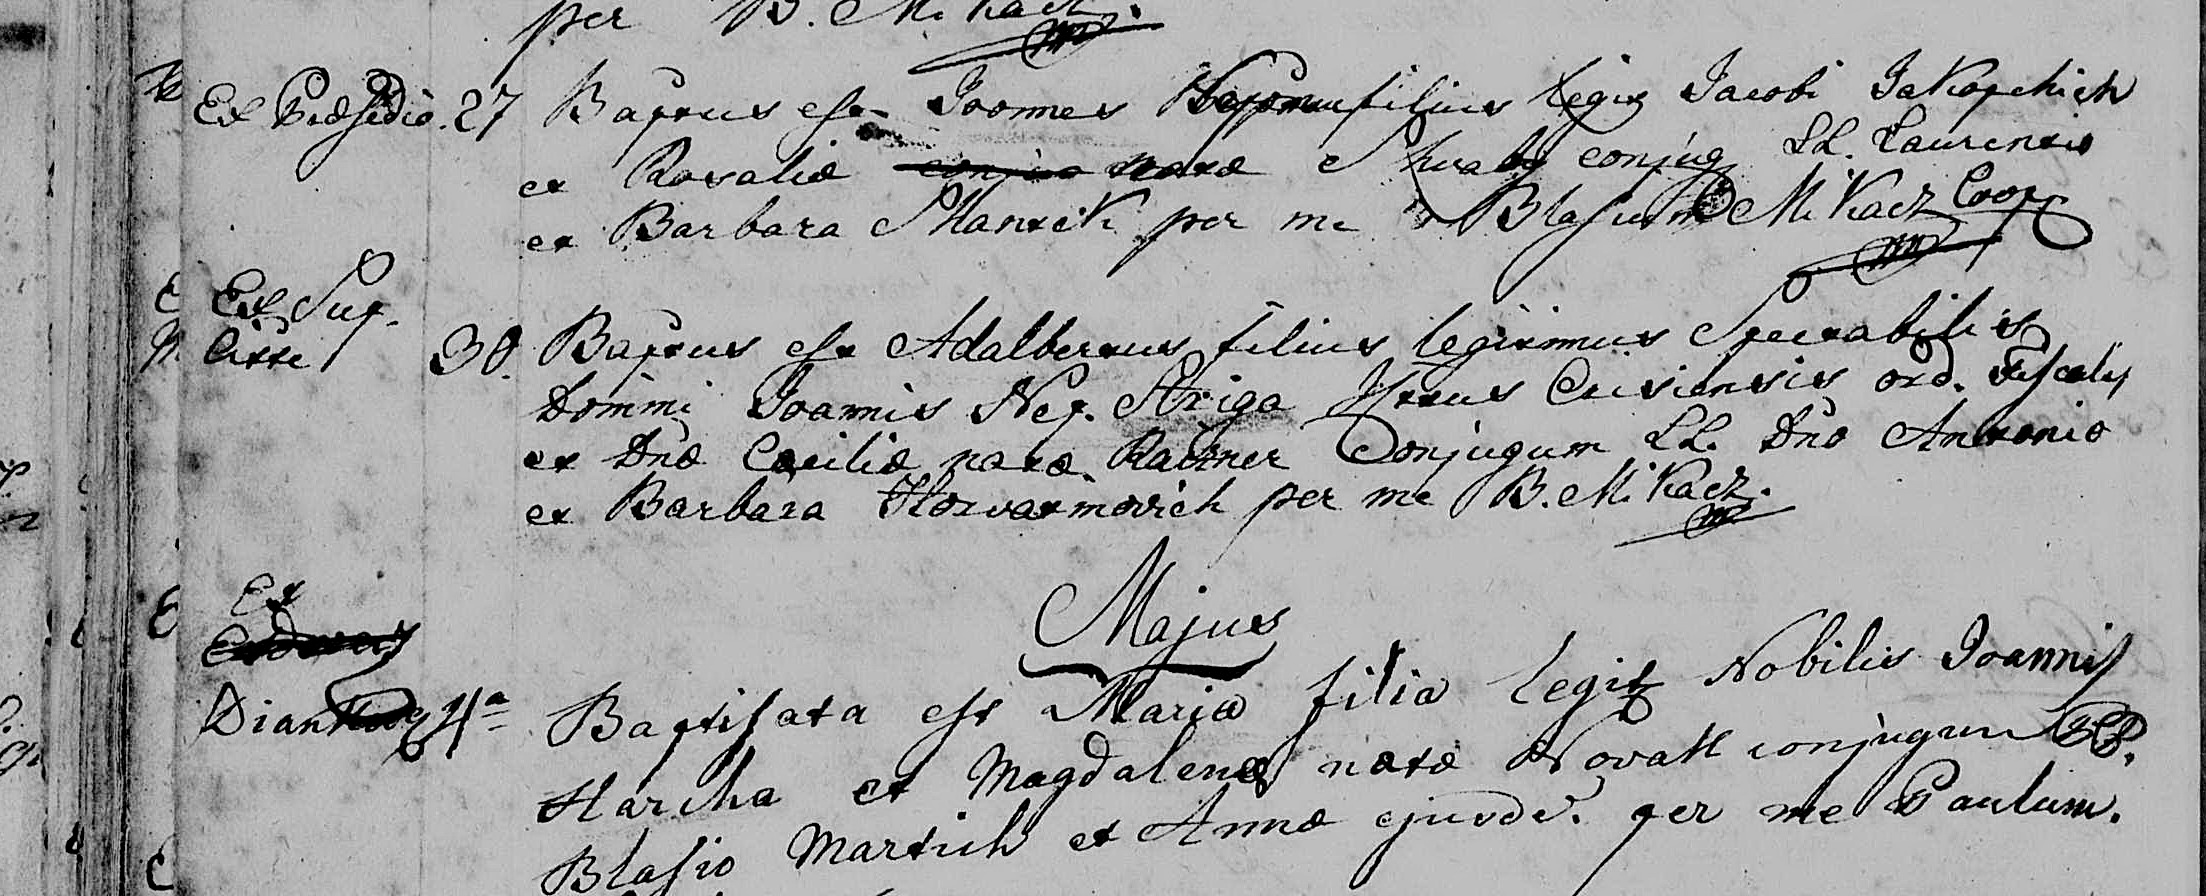 per B. Mikacz.
Ex Præsidio. 27 Baptus est Joannes Nepomu filius legit Jacobi Jakopchich
et Rosaliæ natæ Shvab conjug LL. Laurentio
et Barbara Mantek per me Blasium Mikacz Coop
Ex Sup.
Citte 30. Baptus est Adalbertus filius legitimus Spectabilis
Domini Joannis Nep. Striga Ittus Crisiensis ord. Fiscalis
et Dnæ Cæciliæ natæ Raitner Conjugum LL. Dno Antonio
et Barbara Horvatinovich per me B. Mikacz.
Majus
Ex
Diankovez 4ª Baptisata est Maria filia legit Nobilis Joannis
Harcha et Magdalenæ natæ Novak conjugum PP.
Blasio Martich et Anna ejusde. per me Paulum.